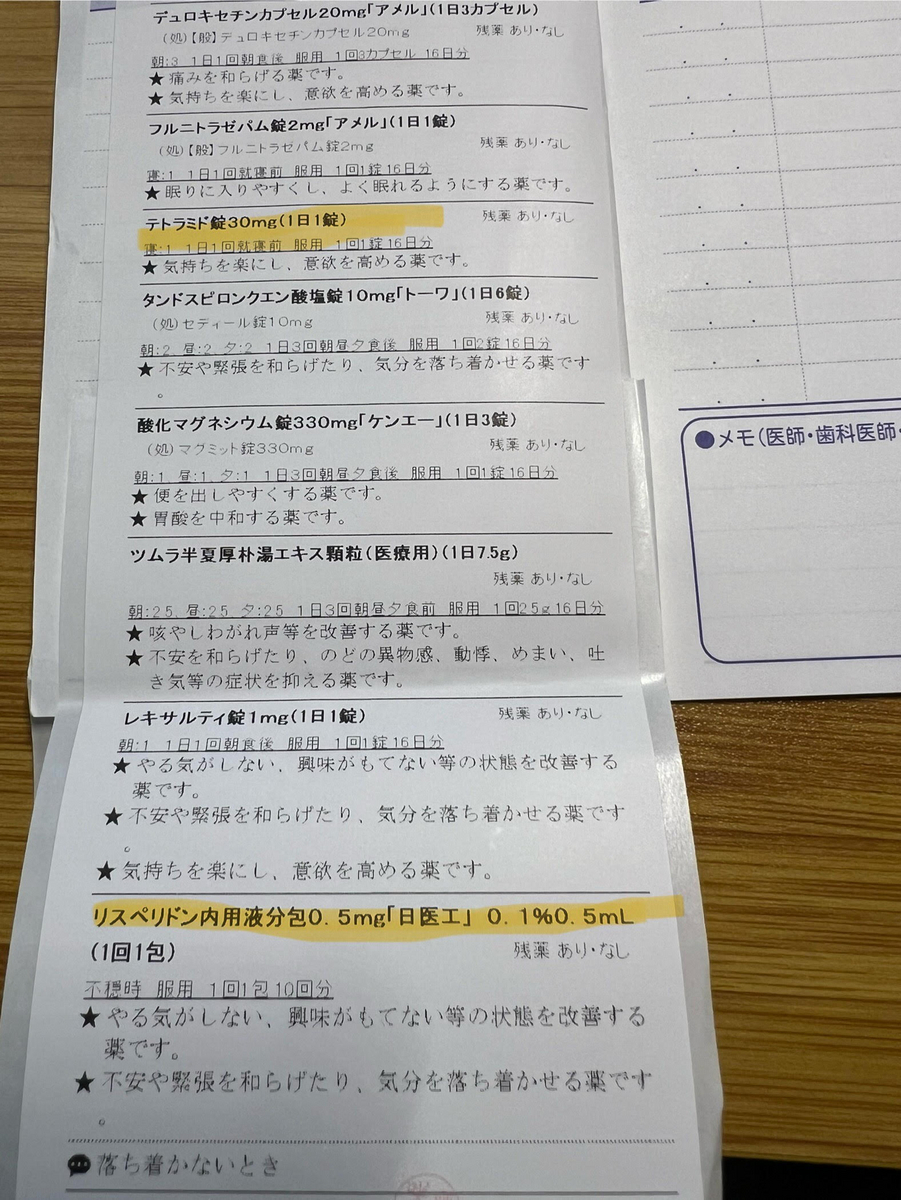 デュロキセチンカプセル20mg「アメル」(1日3カプセル)
(処)【般】デュロキセチンカプセル20mg 残薬 あり・なし
朝:3 1日1回朝食後 服用 1回3カプセル 16日分
★痛みを和らげる薬です。
★気持ちを楽にし、意欲を高める薬です。
フルニトラゼパム錠2mg「アメル」(1日1錠)
(処)【般】フルニトラゼパム錠2mg 残薬 あり・なし
寝:1 1日1回就寝前 服用 1回1錠16日分
★眠りに入りやすくし、よく眠れるようにする薬です。
テトラミド錠30mg(1日1錠) 残薬 あり・なし
寝:1 1日1回就寝前 服用 1回1錠16日分
★気持ちを楽にし、意欲を高める薬です。
タンドスピロンクエン酸塩錠10mg「トーワ」(1日6錠)
(処)セディール錠10mg 残薬 あり・なし
朝:2 昼:2 夕:2 1日3回朝昼夕食後 服用 1回2錠16日分
★不安や緊張を和らげたり、気分を落ち着かせる薬です
。
酸化マグネシウム錠330mg「ケンエー」(1日3錠)
(処)マグミット錠330mg 残薬 あり・なし
朝:1 昼:1 夕:1 1日3回朝昼夕食後 服用 1回1錠16日分
★便を出しやすくする薬です。
★胃酸を中和する薬です。
ツムラ半夏厚朴湯エキス顆粒(医療用)(1日7.5g)
残薬 あり・なし
朝:2.5 昼:2.5 夕:2.5 1日3回朝昼夕食前 服用 1回2.5g16日分
★咳やしわがれ声等を改善する薬です。
★不安を和らげたり、のどの異物感、動悸、めまい、吐
き気等の症状を抑える薬です。
レキサルティ錠1mg(1日1錠) 残薬 あり・なし
朝:1 1日1回朝食後 服用 1回1錠16日分
★やる気がしない、興味がもてない等の状態を改善する
薬です。
★不安や緊張を和らげたり、気分を落ち着かせる薬です
。
★気持ちを楽にし、意欲を高める薬です。
リスペリドン内用液分包0.5mg「日医工」 0.1%0.5mL
(1回1包) 残薬 あり・なし
不穏時 服用 1回1包10回分
★やる気がしない、興味がもてない等の状態を改善する
薬です。
★不安や緊張を和らげたり、気分を落ち着かせる薬です
。
落ち着かないとき
●メモ(医師・歯科医師・